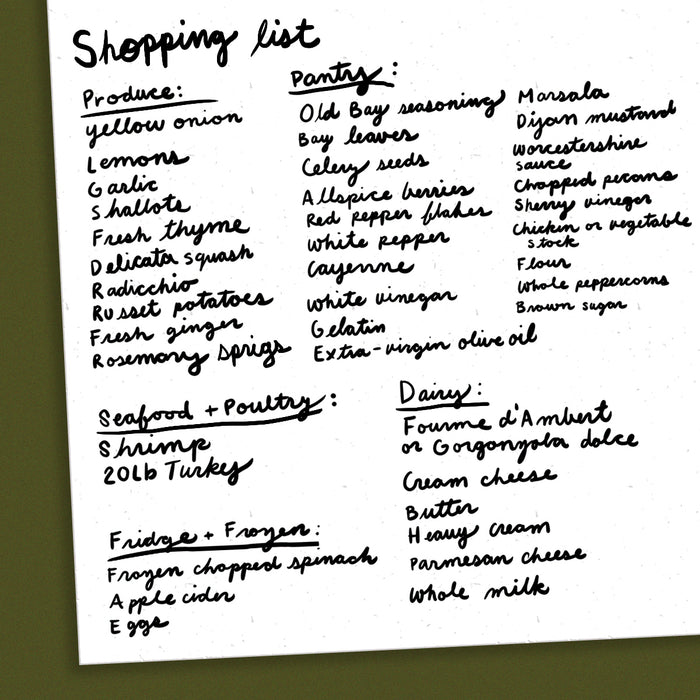 Shopping list
Produce:
yellow onion
Lemons
Garlic
Shallots
Fresh thyme
Delicata squash
Radicchio
Russet potatoes
Fresh ginger
Rosemary sprigs
Pantry:
Old Bay seasoning
Bay leaves
Celery seeds
Allspice berries
Red pepper flakes
White pepper
Cayenne
White vinegar
Gelatin
Extra-virgin olive oil
Marsala
Dijon mustard
Worcestershire
sauce
Chopped pecans
Sherry vinegar
Chicken or vegetable
stock
Flour
Whole peppercorns
Brown sugar
Seafood + Poultry:
Shrimp
20Lb Turkey
Fridge + Frozen:
Frozen chopped spinach
Apple cider
Eggs
Dairy:
Fourme d'Ambert
or Gorgonzola dolce
Cream cheese
Butter
Heavy cream
Parmesan cheese
Whole milk